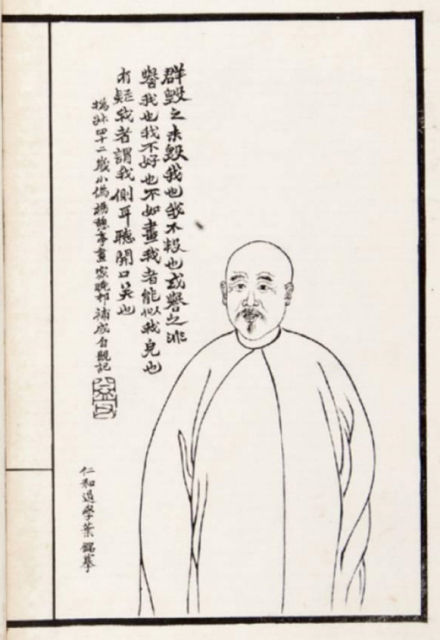 群毀之未毀我也我不報也或譽之非
譽我也我不好也不如畫我者能似我皃也
有疑我者謂我側耳聽開口笑也
撝叔四十二歲小像楊憩亭畫家晚邨補成自觀記
仁和後學葉銘摹